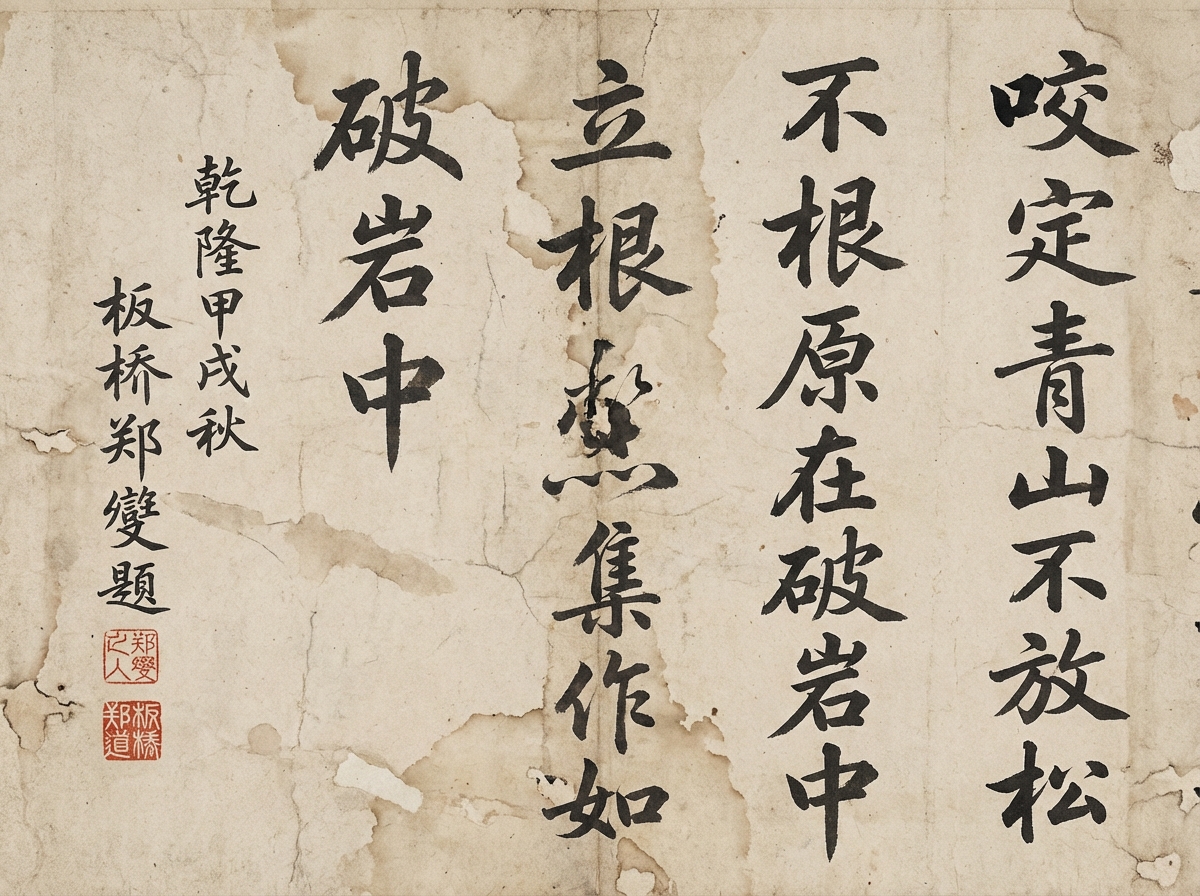 咬定青山不放松
不根原在破岩中
立根集作如
破岩中
乾隆甲戌秋
板桥郑變題
郑變人
板橋郑道